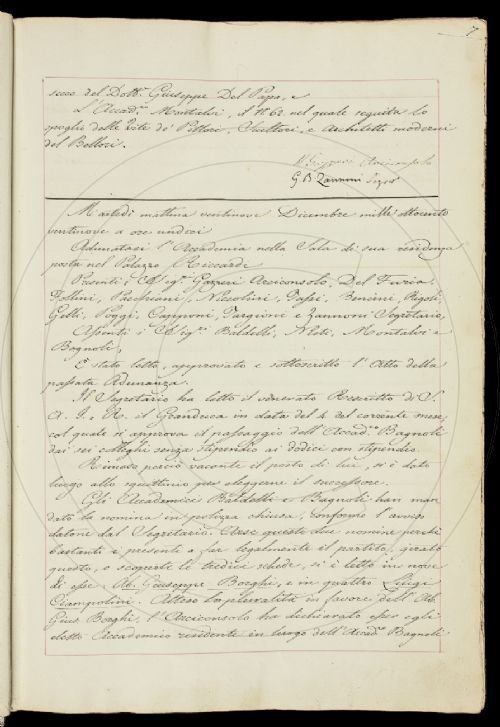 7
secco del Dott.r Giuseppe Del Papa, e
L'Accad.co Montalvi, il N.o 62. nel quale seguita lo
spoglio delle Vite de' Pittori, Scultori, e Architetti moderni
del Bellori.
Arciconsolo
G. B. Zannoni Segr.o
Martedì mattina ventinove Dicembre mille ottocento
ventinove a ore undici
Adunatasi l'Accademia nella Sala di sua residenza
posta nel Palazzo Riccardi
Presenti i Sig.ri Gazzeri Arciconsolo, Del Furia,
Follini, Pacchiani, Niccolini, Tassi, Bencini, Rigoli,
Gelli, Poggi, Capponi, Targioni e Zannoni Segretario,
Assenti i Sig.ri Baldelli, Nesti, Montalvi e
Bagnoli,
È stato letto, approvato e sottoscritto l'Atto della
passata Adunanza.
Il Segretario ha letto il venerato Rescritto di S.
A. I. e R. il Granduca in data del 4 del corrente mese,
col quale si approva il passaggio dell'Accad.co Bagnoli
dai sei colleghi senza stipendio ai dodici con stipendio.
Rimaso perciò vacante il posto di lui, si è dato
luogo allo squittinio per eleggerne il successore.
Gli Accademici Baldelli e Bagnoli han man
dato la nomina in polizza chiusa, conforme l'avviso
datone dal Segretario. Arse queste due nomine perchè
bastanti i presenti a far legalmente il partito, girato
questo, e scoperte le tredici schede, si è letto in nove
di esse Ab. Giuseppe Borghi, e in quattro Luigi
Ciampolini. Attesa la pluralità in favore dell'Ab.
Gius. Borghi, l'Arciconsolo ha dichiarato esser egli
eletto Accademico residente in luogo dell'Accad.co Bagnoli